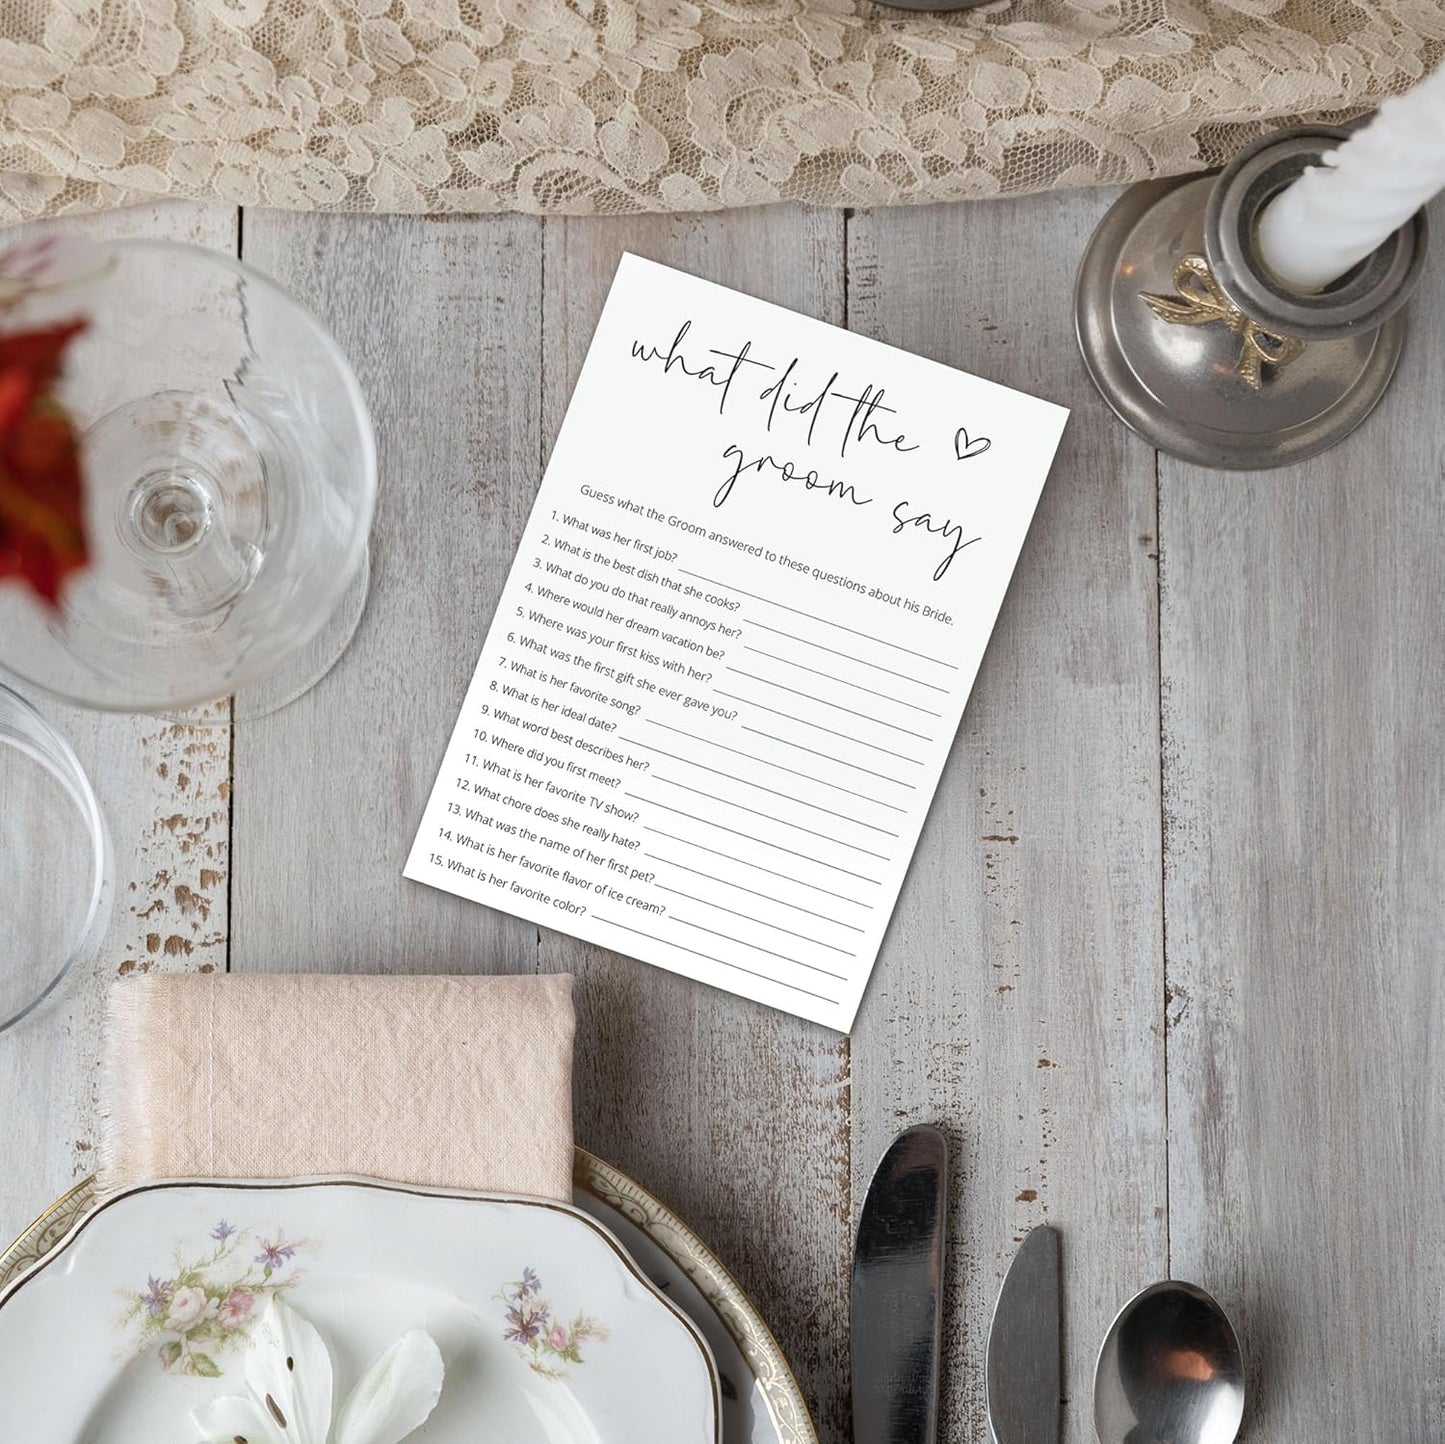 what did the
groom say
Guess what the Groom answered to these questions about his Bride.
1. What was her first job?
2. What is the best dish that she cooks?
3. What do you do that really annoys her?
4. Where would her dream vacation be?
5. Where was your first kiss with her?
6. What was the first gift she ever gave you?
7. What is her favorite song?
8. What is her ideal date?
9. What word best describes her?
10. Where did you first meet?
11. What is her favorite TV show?
12. What chore does she really hate?
13. What was the name of her first pet?
14. What is her favorite flavor of ice cream?
15. What is her favorite color?